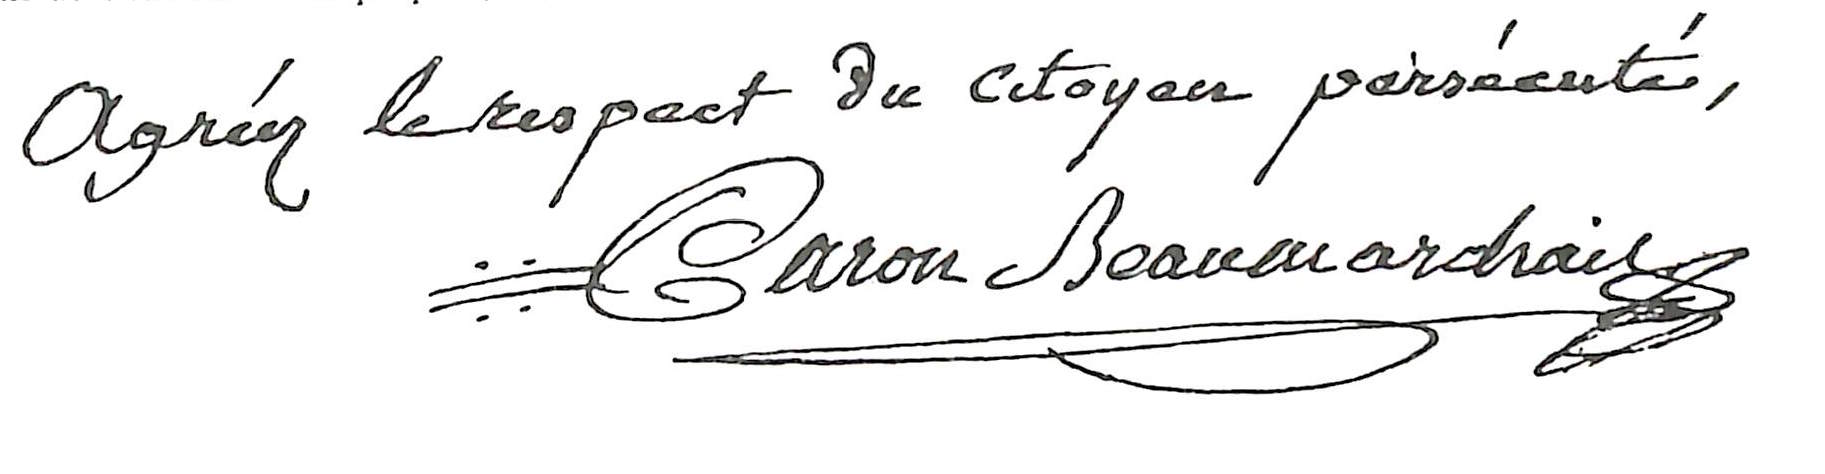 Agréez le respect du citoyen persécuté,
Caron Beaumarchais